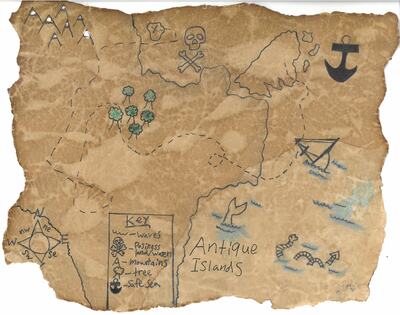 N
nw
ne
W
E
sw
se
S
Key
- waves
- mountains
- tree
- Safe Sea
Antique
Islands